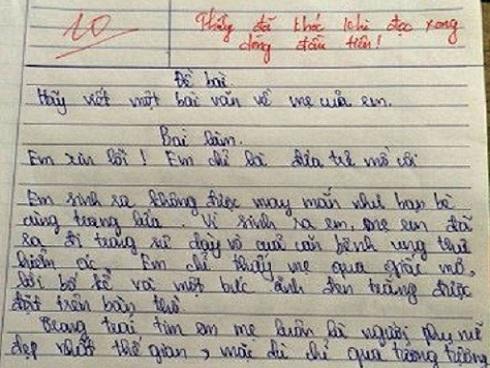 10
Thầy đã khóc khi đọc xong
dòng đầu tiên!
Đề bài
Hãy viết một bài văn về mẹ của em.
Bài làm.
Em xin lỗi! Em chỉ là đứa trẻ mồ côi
Em sinh ra không được may mắn như bạn bè
cùng trang lứa. Vì sinh ra em, mẹ em đã
ra đi trong sự dày vò của căn bệnh ung thư
hiểm ác. Em chỉ thấy mẹ qua giấc mơ,
lời bố kể và một bức ảnh đen trắng được
đặt trên bàn thờ.
Trong trái tim em mẹ luôn là người phụ nữ
đẹp nhất thế gian, mặc dù chỉ qua tưởng tượng